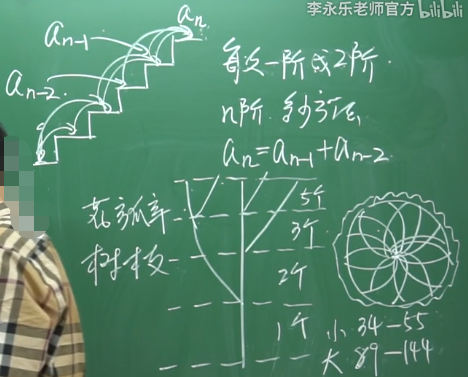 李永乐老师官方 bilibili
aₙ
aₙ₋₁
aₙ₋₂
每次一阶或2阶.
n阶.多少方法
aₙ=aₙ₋₁+aₙ₋₂
5个
3个
树枝
2个
1个
小 34—55
大 89—144